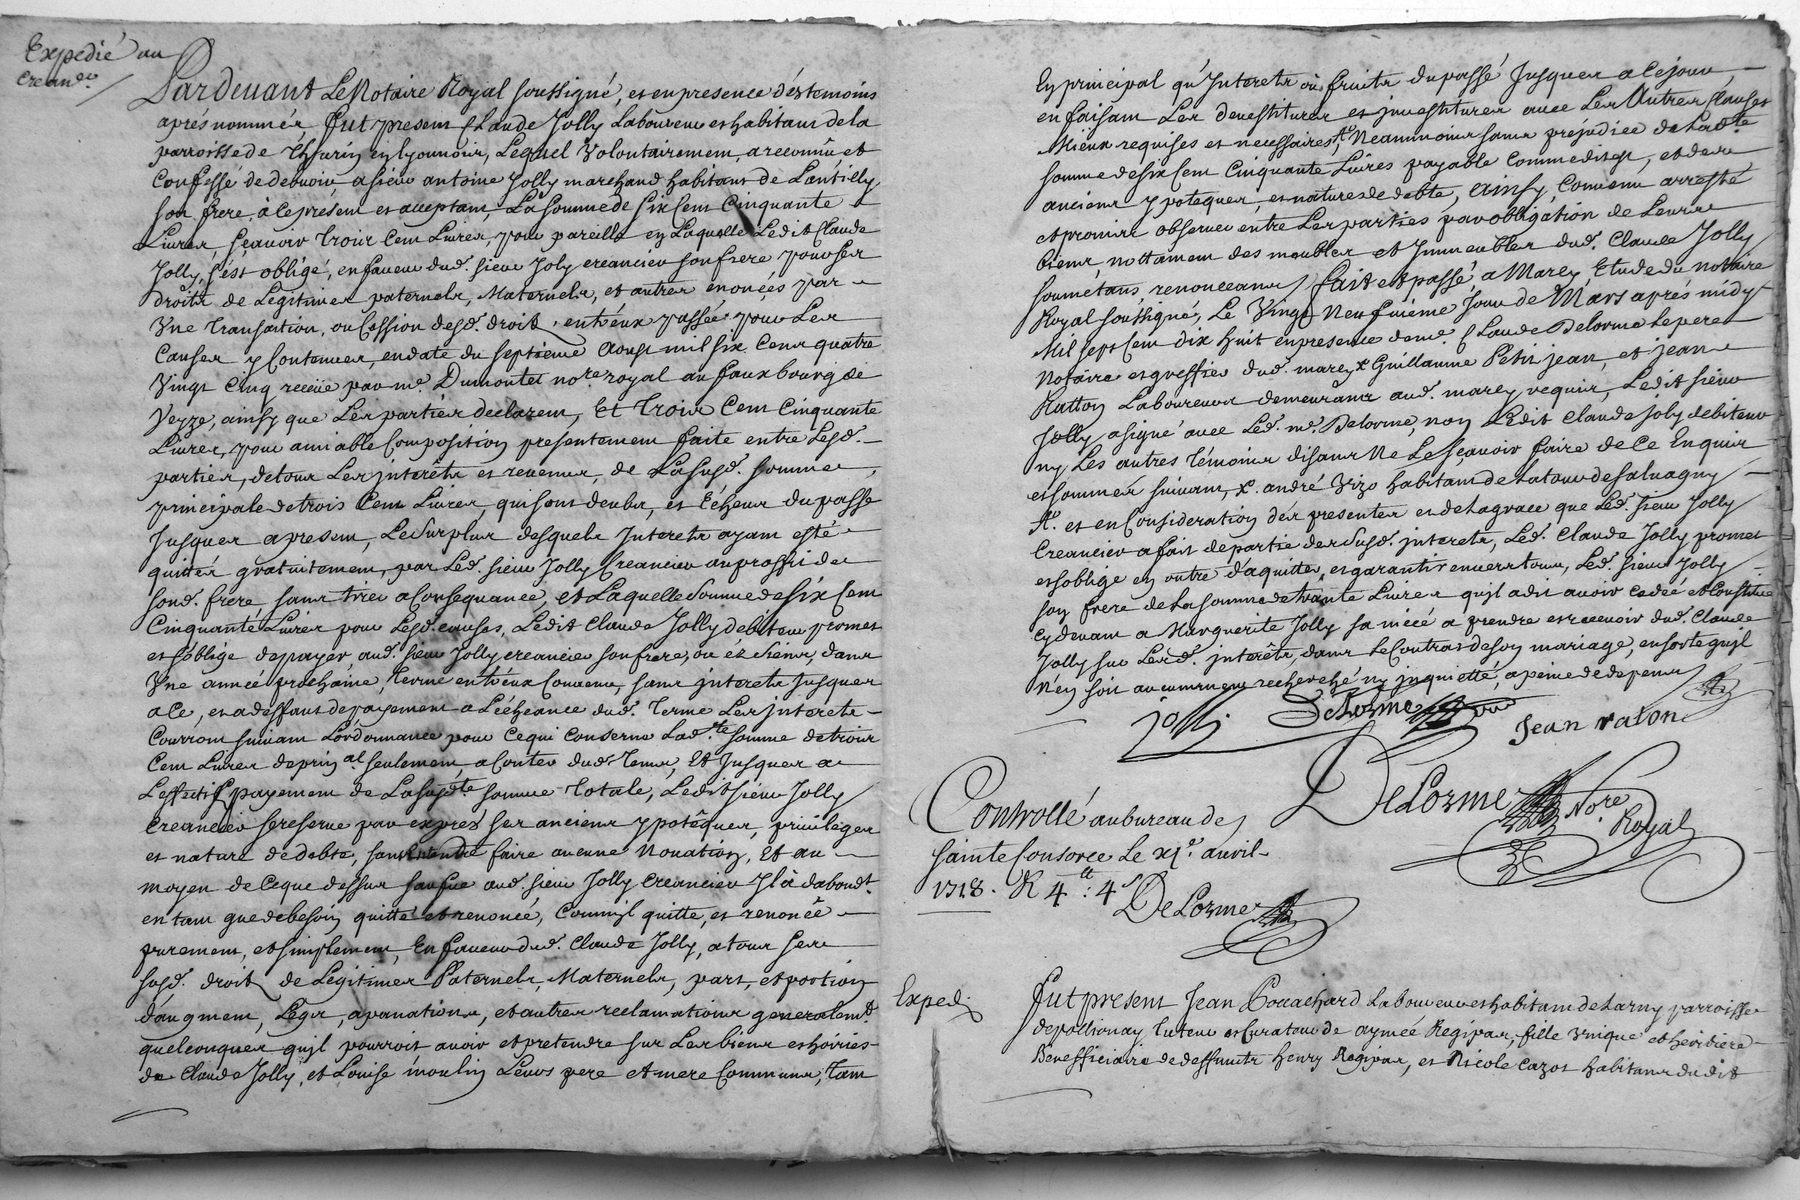 Expedié au
crean.er
Pardevant Le Notaire Royal soussigné, et en presence des temoins
aprés nommés, fut present Claude Jolly Laboureur et habitant de la
parroisse de Thurin en lyonnois, Lequel Volontairement, a reconnû et
Confessé de debvoir a sieur antoine Jolly marchand habitant de Lantilly
son frere, à ce present et acceptant, La somme de six Cent Cinquante
Livres, sçauoir trois Cent Livres, pour pareille en Laquelle Ledit Claude
Jolly, s'est obligé, en faueur dud. sieur Joly creancier son frere pour ses
droits de Legitimes paternels, Maternels, et autres enoncés par
Vne transaction, ou Cession desd. droits, entreux passée pour Les
Causes y Contenues, en date du septieme Aoust mil six Cent quatre
Vingt Cinq receüe par me. Dumontet no.re royal au faux bourg de
Veyze, ainsy que Les parties declarent, Et trois Cent Cinquante
Livres, pour amiable Composition presentement faite entre Lesd.
parties, de tous Les interêts et reuenus, de La susd. somme
principale de trois Cent Livres, qui sont deubs, et Echeus du passé
Jusques a present, Le surplus desquels Interets ayant esté
quittés gratuitement, par Led. sieur Jolly Creancier au proffit de
sond. frere, sans tirer a Consequance, et Laquelle somme de six Cent
Cinquante Livres pour Lesd. causes, Ledit Claude Jolly débiteur promet
et s'oblige de payer, aud. sieur Jolly creancier son frere, ou ez siens, dans
Vne année prochaine, terme entreux Conuenu, sans interets Jusques
a Ce, et a deffaut de payement a L'écheance dud. terme Les interets
Courront suiuant L'ordonnance pour Ce qui Conserne Lad.te somme de trois
Cent Livres de prin.al seulement, a Conter dud. terme, Et Jusques au
L'effectif payement de La susd.te somme totale, Ledit sieur Jolly
Creancier se reserue par expres ses anciens ypotêques, priuileges
et nature de debte, sans Entendre faire aucune Nouation, Et au
moyen de Ce que dessus sauf ue aud. sieur Jolly Creancier Il à dabondt.
en tant que de besoin quitté et renoncé, Comm'il quitte, et renonce
purement, et simplement, En faueur dud. Claude Jolly, a tous ses
susd. droits de Legitimes Paternels, Maternels, part, et portion
d'augment, Legs, auanations, et autres reclamations generalem.t
quelconques qu'il pourroit auoir et pretendre sur Les biens et hoiries
de Claude Jolly, et Louise moulin Leurs pere et mere Communs, tant
En principal qu'Interets où fruits du passé Jusques a Ce jour
en faisant Les deuestitures et inuestitures auec Les Autres Clauses
Mieux requises et necessaires, Neammoins sans préjudice de Lad.te
somme de six Cent Cinquante Livres payable Comme dit est, et de ses
anciens ypoteques, et nature de debte, Ainsy, Conuenu arresté
et promis obseruer entre Les parties par obligation de Leurs
biens, nottament des meubles et Immeubles dud. Claude Jolly
soumetans, renonceans, fait et passé a Marcy Etude du notaire
Royal soussigné, Le Vingt Neufuieme Jour de Mars aprés midy
Mil sept Cent dix huit en presence de me. Claude Delorme Le pere
Notaire et greffier dud. marcy x Guillaume Petit jean, et jean
Ratton Laboureurs demeurants aud. marcy requis, Ledit sieur
Jolly a signé auec Led. me. Delorme, non Ledit Claude Joly debiteur
ny Les autres témoins disans Ne Le sçauoir faire de Ce Enquis
et sommés suiuant, x. andré Vizo habitant de La tour de saluagny
Ao. et en Consideration des presentes et de La grace que Led. sieur Jolly
Creancier a fait de partie des susd. interets, Led. Claude Jolly promet
et s'oblige en outre d'aquitter, et garantir enuers tous, Led. sieur Jolly
son frere de La somme de trante Livres qu'il a dit auoir cedée et Constitué
Cy deuant a Marguerite Jolly sa niéce a prendre et receuoir dud. Claude
Jolly sur Lesd. interêts, dans Le Contrat de son mariage, en sorte qu'il
n'en soit aucunement recherché ny inquietté, a peine de depens
Jolly. Delorme Jean raton
DeLorme No.re Royal
Controllé au bureau de
sainte Consorce Le xje. auril
1718. R 4 tt: 4 s DeLorme
Exped.
fut present Jean Coccachard Laboureur et habitant de Larny parroisse
de pollionay tuteur et Curateur de aymée Regipas, fille Vnique et heritiere
Benefficiaire de deffuncts Henry Regipas, et Nicole Cazot habitans du dit